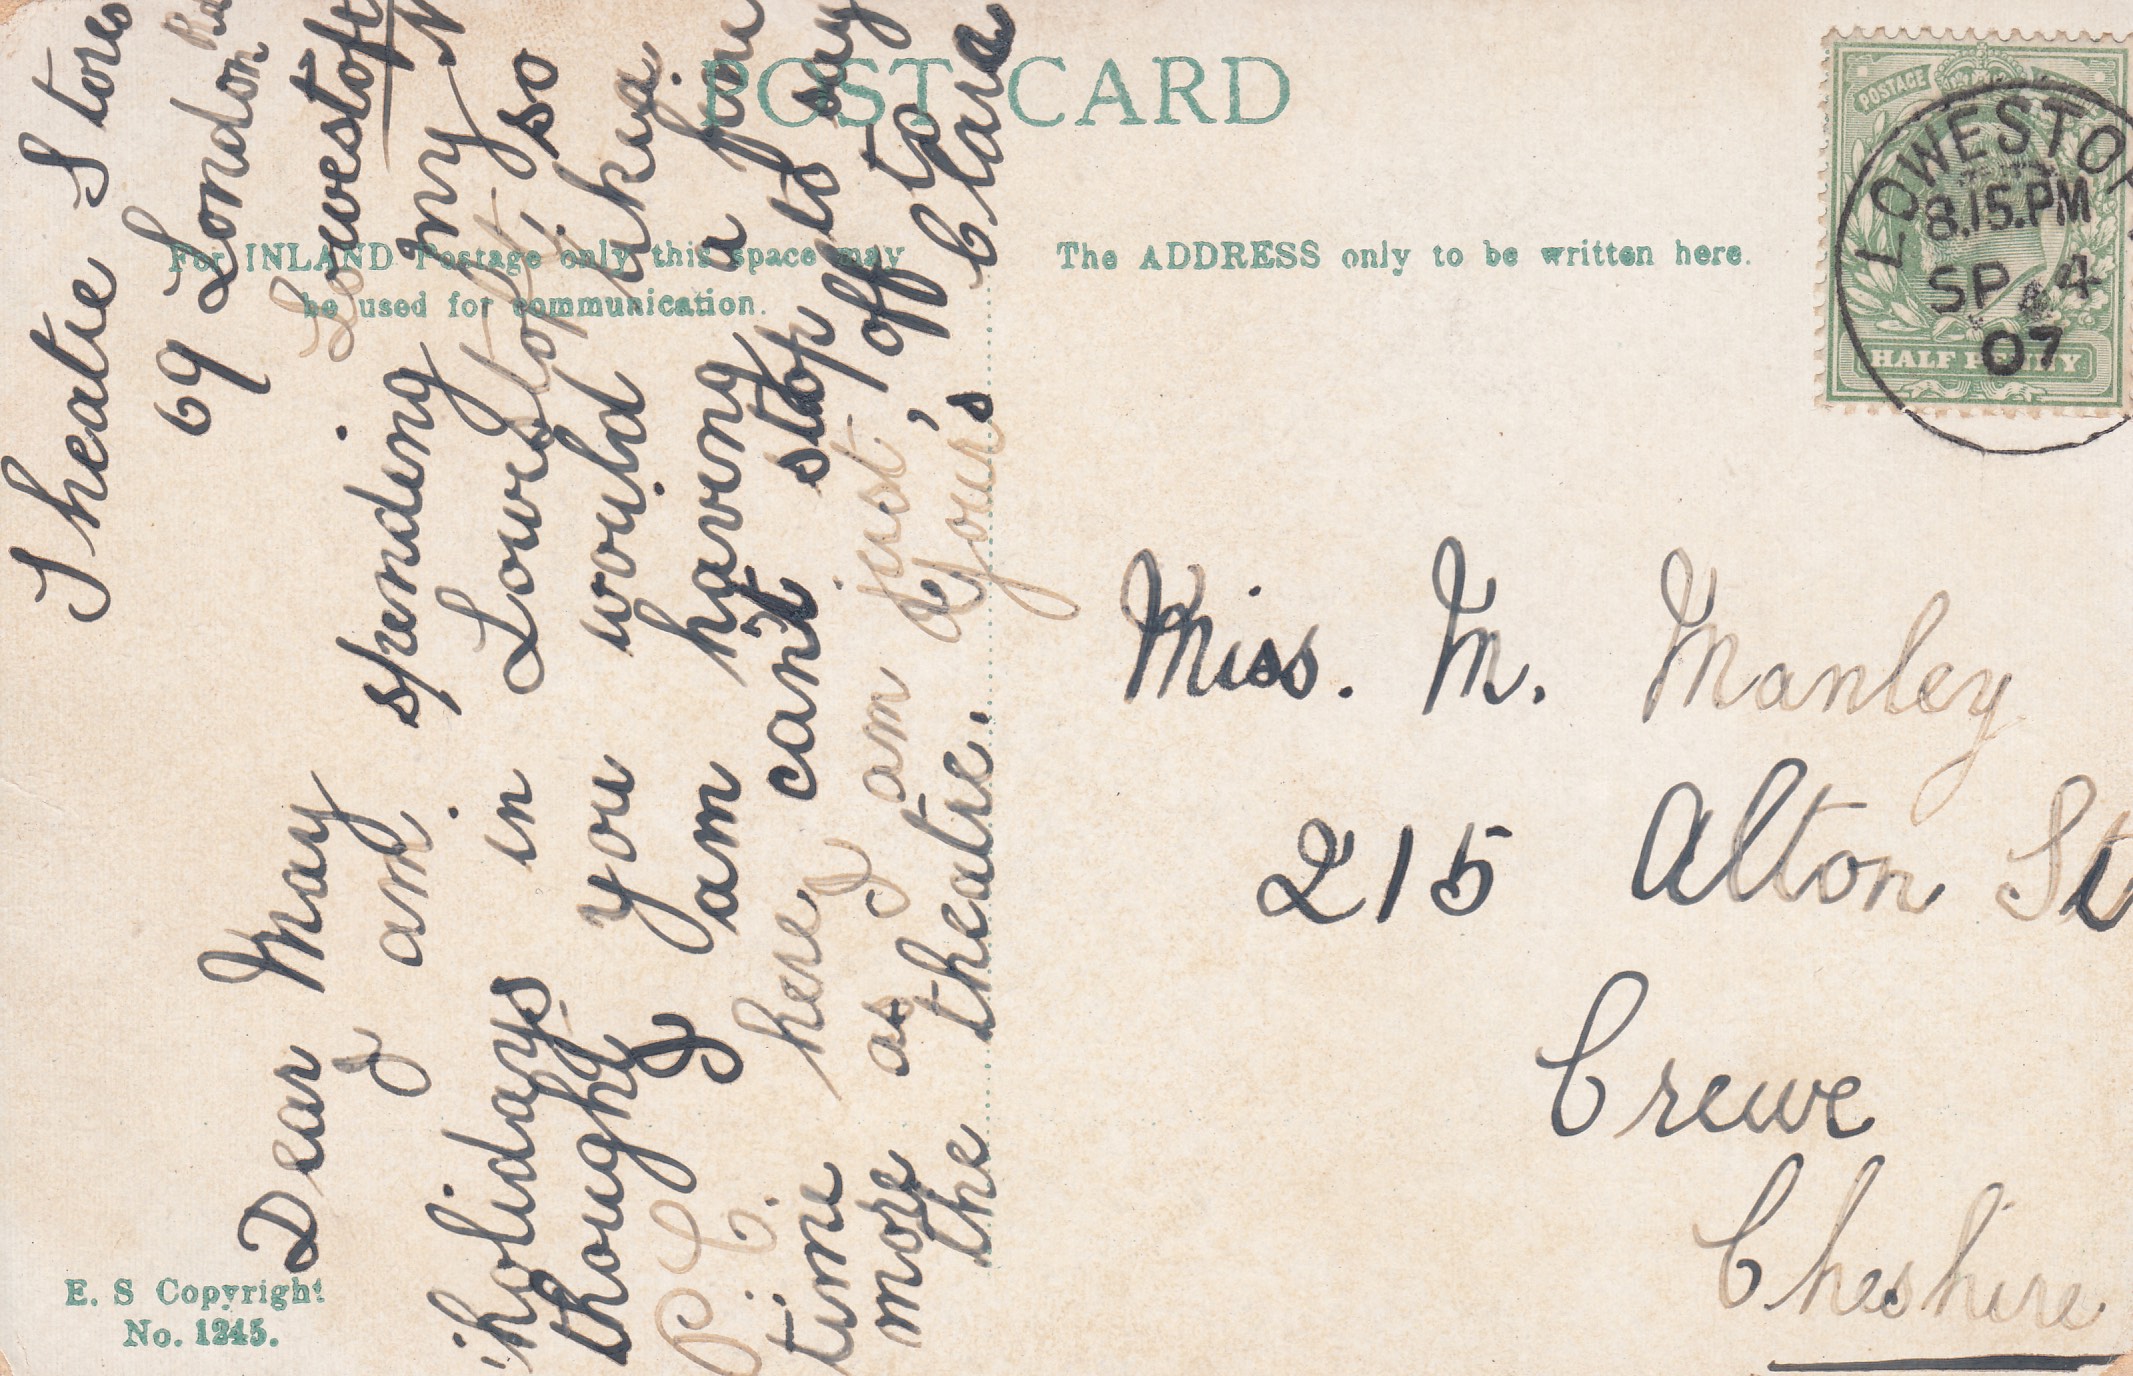 POST CARD
For INLAND Postage only this space may
be used for communication.
The ADDRESS only to be written here.
POSTAGE
HALF PENNY
LOWESTOF
8.15.PM
SP 4
07
Theatre Stores
69 London Rd
Lowestoft
Dear May
I am spending my
holidays in Lowestoft, so
thought you would like a
P.C. I am having a fine
time here, I can't stop to say
more as I am just off to
the theatre. Your's Clara
Miss. M. Manley
215 Alton St
Crewe
Cheshire
E. S Copyright
No. 1245.